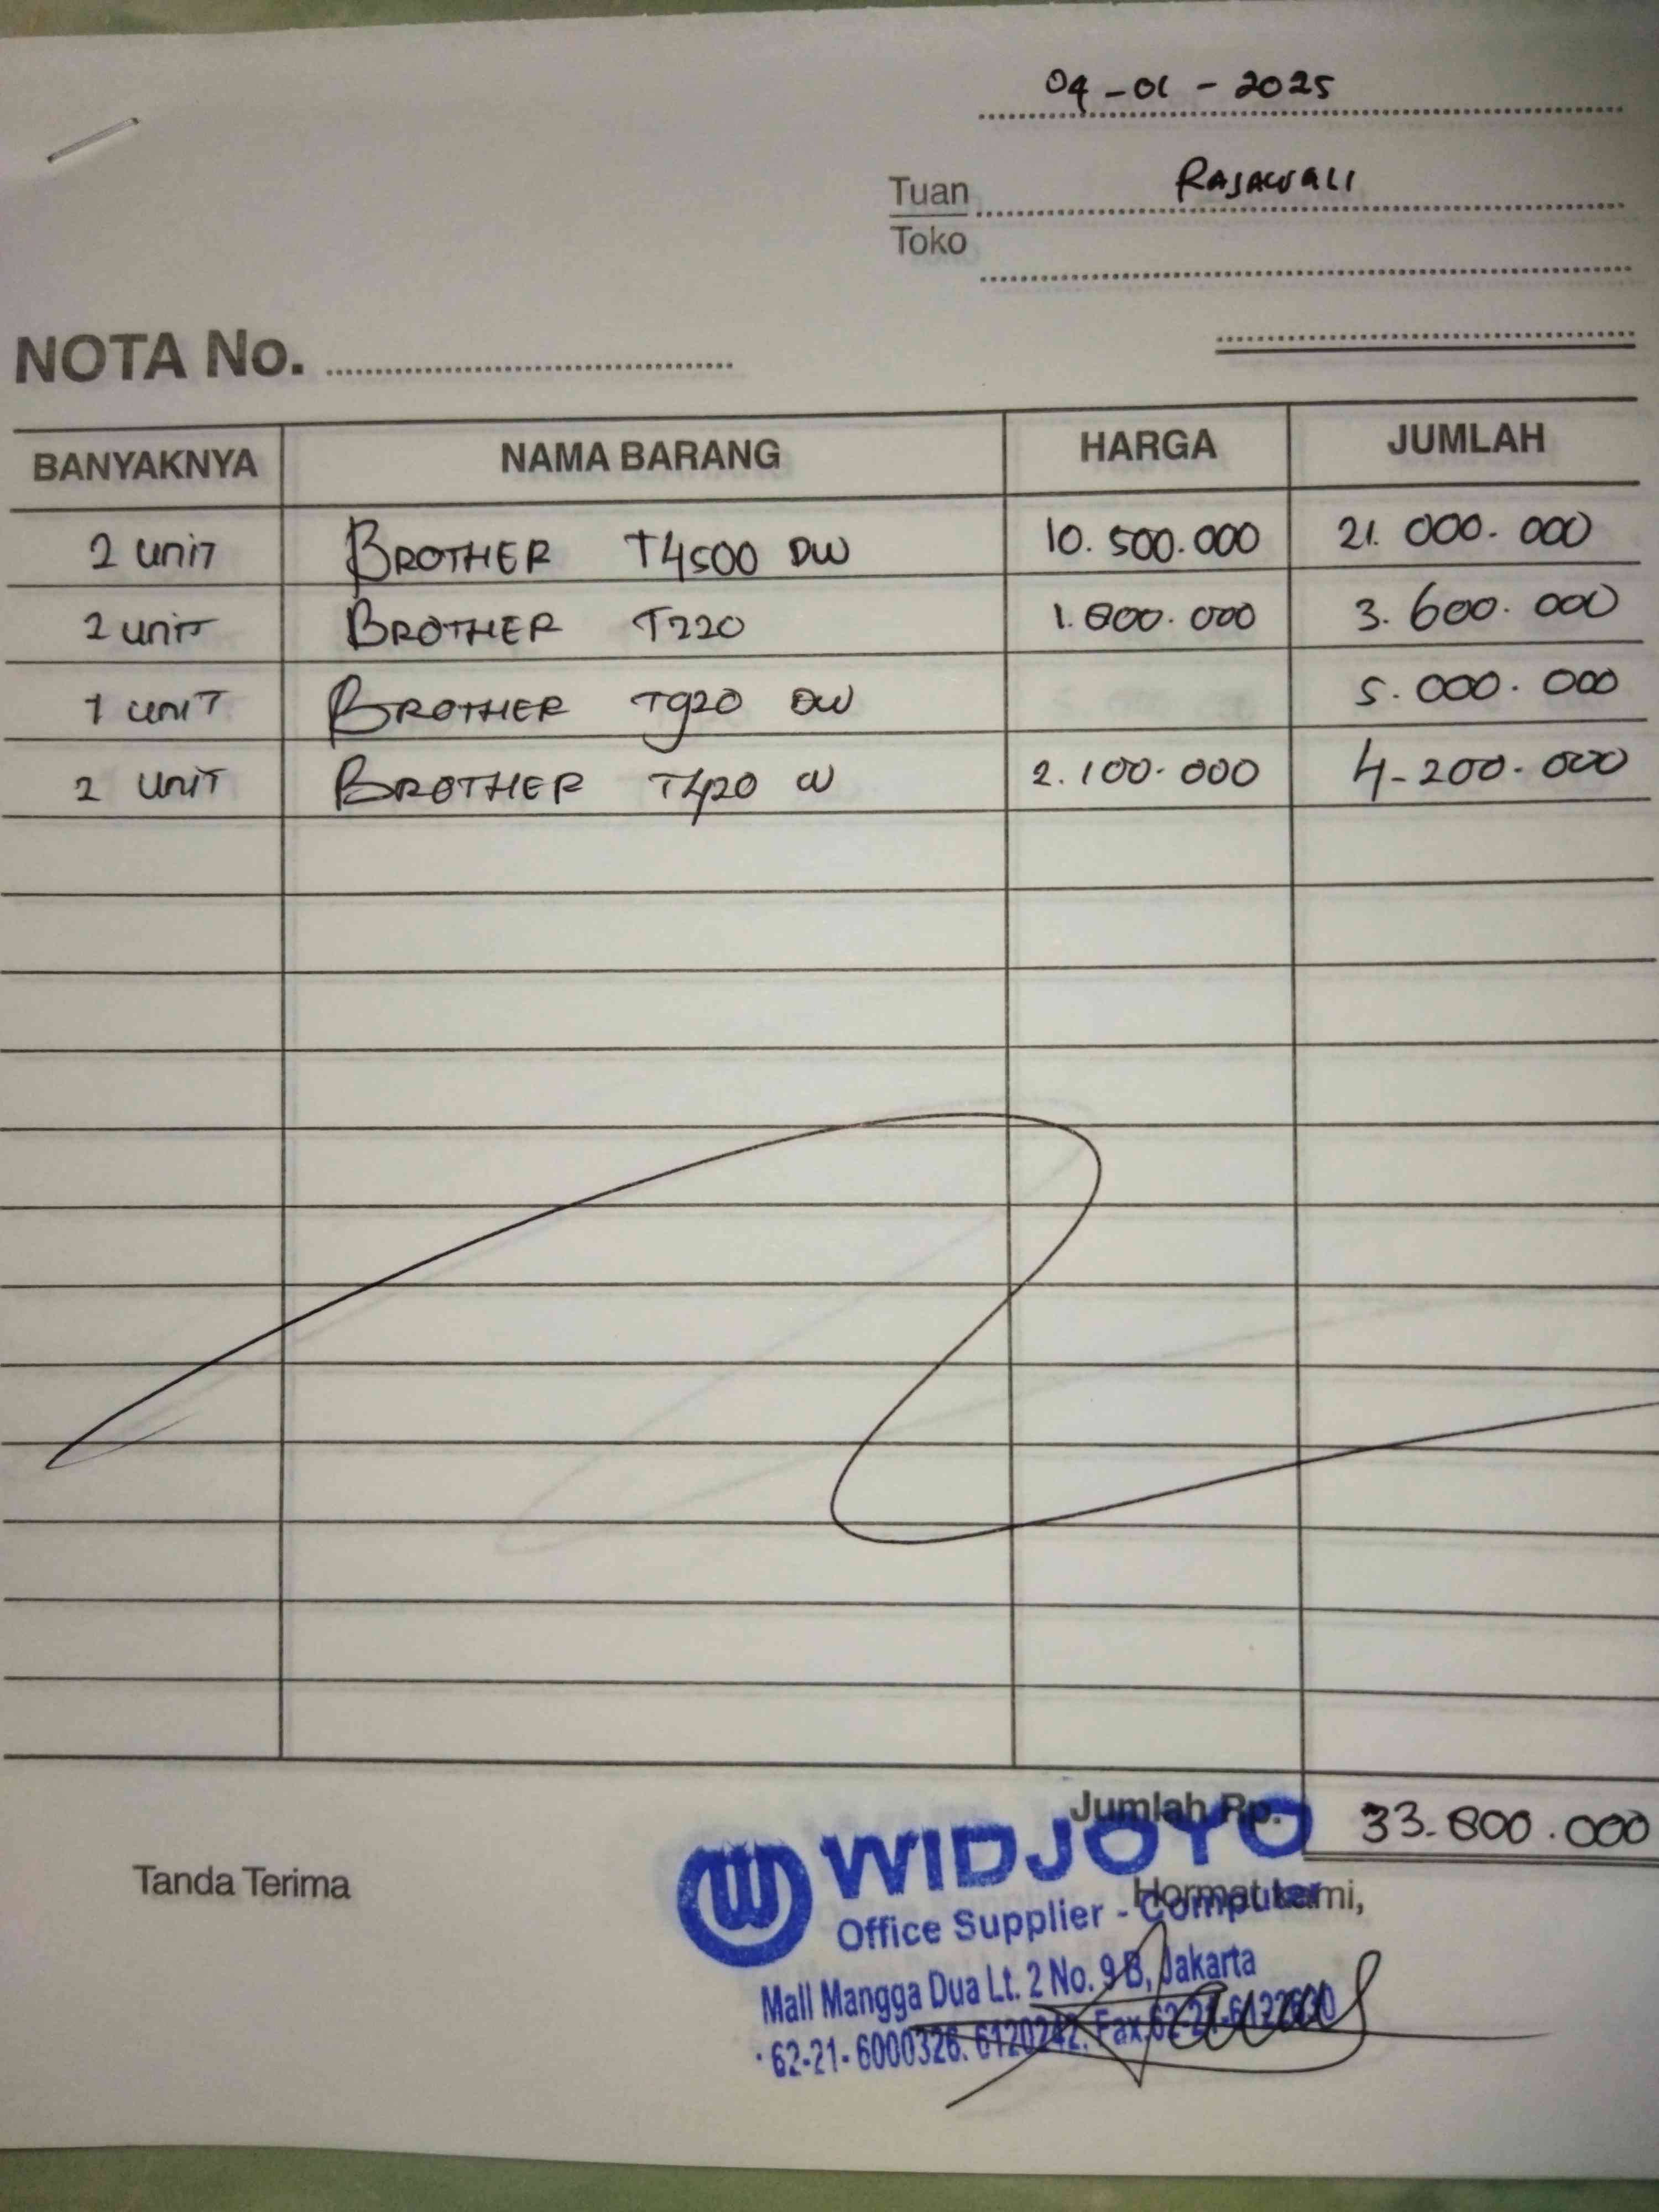 04-01-2025
Tuan RAJAWALI
Toko
NOTA No.
BANYAKNYA NAMA BARANG HARGA JUMLAH
2 unit BROTHER T4500 DW 10.500.000 21.000.000
2 unit BROTHER T220 1.800.000 3.600.000
1 unit BROTHER T920 DW 5.000.000
2 UNIT BROTHER T420 W 2.100.000 4.200.000
Jumlah Rp. 33.800.000
Tanda Terima
Hormat kami,
WIDJOYO
Office Supplier - Computer
Mall Mangga Dua Lt. 2 No. 9 B, Jakarta
62-21-6000326. 6120242. Fax.62-21-